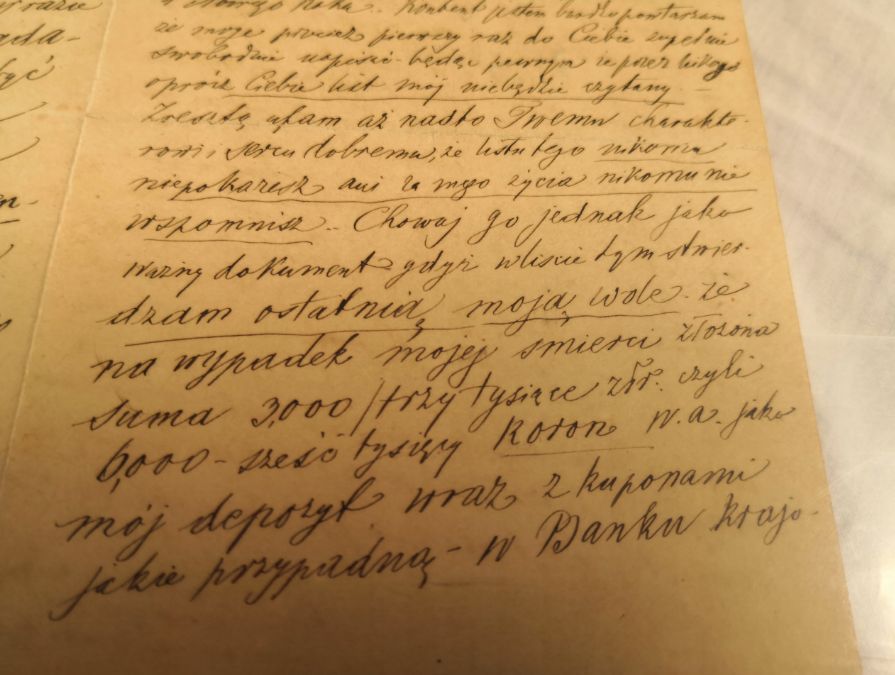 y razie
gda-
być
en-
Nowego Roku. Kontent jestem bardzo powtarzam
że mogę przecież pierwszy raz do Ciebie zupełnie
swobodnie napisać będąc pewnym że przez nikogo
oprócz Ciebie list mój niebędzie czytany. —
Zresztą ufam aż nadto Twemu charakte-
rowi i sercu dobremu, że listu tego nikomu
niepokażesz ani za mego życia nikomu nie
wspomnisz. Chowaj go jednak jako
ważny dokument gdyż wliście tym stwier-
dzam ostatnią moją wolę że
na wypadek mojej śmierci złożona
suma 3,000 / trzy tysiące złr. czyli
6,000 - sześć tysięcy Koron w. a. jako
mój depozyt wraz z kuponami
jakie przypadną - w Banku krajo-